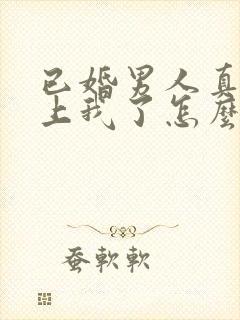 已婚男人真
上我了怎麼
蚕軟軟